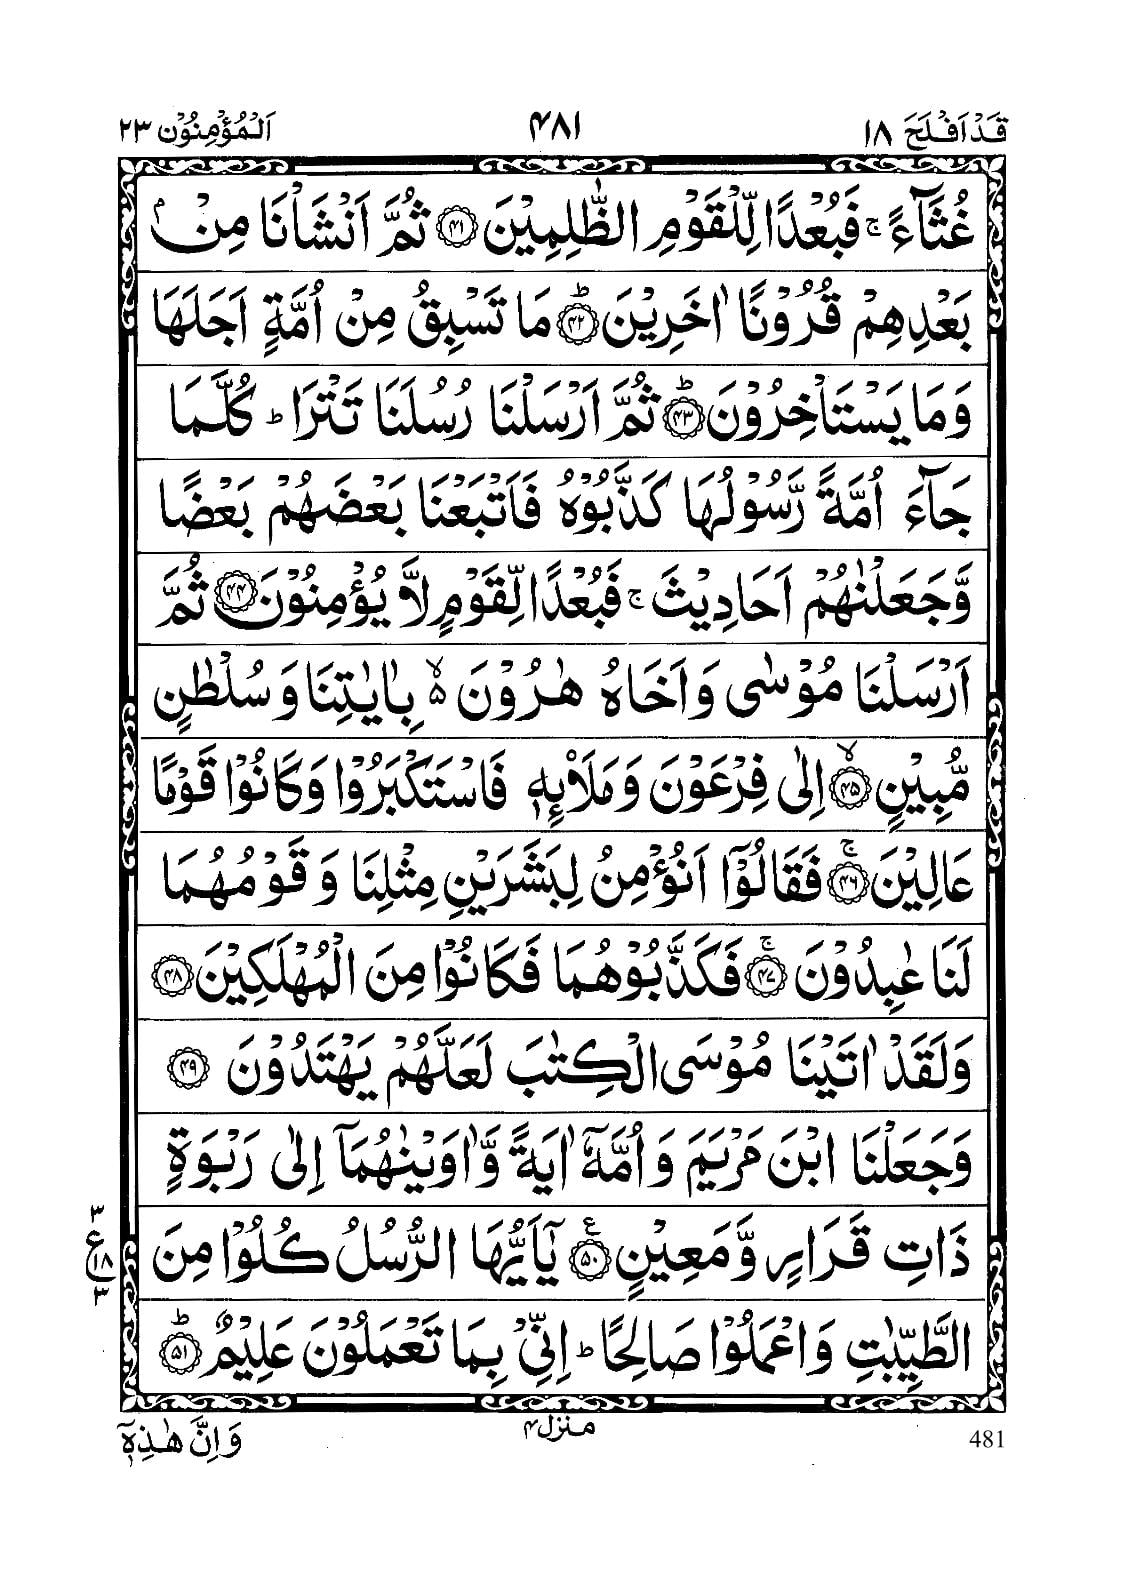 قَدْ اَفْلَحَ ١٨ ۴٨١ اَلْمُؤْمِنُوْن ٢٣
غُثَآءً ۚ فَبُعْدًا لِّلْقَوْمِ الظّٰلِمِيْنَ ﴿۴۱﴾ ثُمَّ اَنْشَاْنَا مِنْۢ
بَعْدِهِمْ قُرُوْنًا اٰخَرِيْنَ ؕ﴿۴۲﴾ مَا تَسْبِقُ مِنْ اُمَّةٍ اَجَلَهَا
وَمَا يَسْتَاْخِرُوْنَ ؕ﴿۴۳﴾ ثُمَّ اَرْسَلْنَا رُسُلَنَا تَتْرَا ؕ كُلَّمَا
جَآءَ اُمَّةً رَّسُوْلُهَا كَذَّبُوْهُ فَاَتْبَعْنَا بَعْضَهُمْ بَعْضًا
وَّجَعَلْنٰهُمْ اَحَادِيْثَ ۚ فَبُعْدًا لِّقَوْمٍ لَّا يُؤْمِنُوْنَ ﴿۴۴﴾ ثُمَّ
اَرْسَلْنَا مُوْسٰى وَاَخَاهُ هٰرُوْنَ ۵ۙ بِاٰيٰتِنَا وَسُلْطٰنٍ
مُّبِيْنٍ ۙ﴿۴۵﴾ اِلٰى فِرْعَوْنَ وَمَلَا۟ئِهٖ فَاسْتَكْبَرُوْا وَكَانُوْا قَوْمًا
عَالِيْنَ ۚ﴿۴۶﴾ فَقَالُوْۤا اَنُؤْمِنُ لِبَشَرَيْنِ مِثْلِنَا وَقَوْمُهُمَا
لَنَا عٰبِدُوْنَ ۚ﴿۴۷﴾ فَكَذَّبُوْهُمَا فَكَانُوْا مِنَ الْمُهْلَكِيْنَ ﴿۴۸﴾
وَلَقَدْ اٰتَيْنَا مُوْسَى الْكِتٰبَ لَعَلَّهُمْ يَهْتَدُوْنَ ﴿۴۹﴾
وَجَعَلْنَا ابْنَ مَرْيَمَ وَاُمَّهٗۤ اٰيَةً وَّاٰوَيْنٰهُمَاۤ اِلٰى رَبْوَةٍ
ذَاتِ قَرَارٍ وَّمَعِيْنٍ ﴿۵۰﴾ ع يٰۤاَيُّهَا الرُّسُلُ كُلُوْا مِنَ
٣ ع ١٨ ٣
الطَّيِّبٰتِ وَاعْمَلُوْا صَالِحًا ؕ اِنِّىْ بِمَا تَعْمَلُوْنَ عَلِيْمٌ ؕ﴿۵۱﴾
481 منزل ۴ وَاِنَّ هٰذِهٖۤ